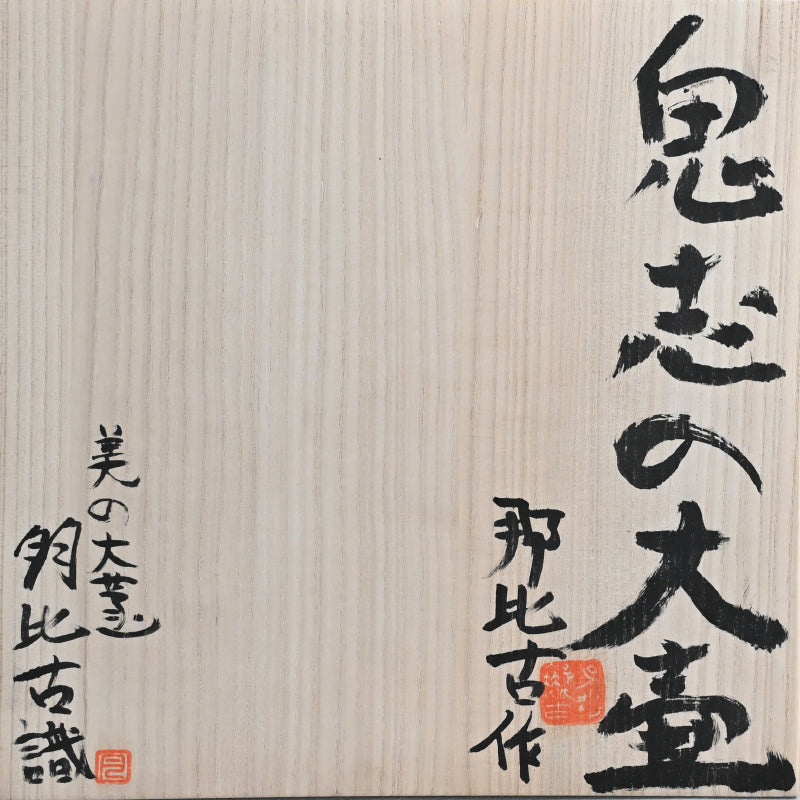 鬼志の大壷
那比古作
美の大
明比古識